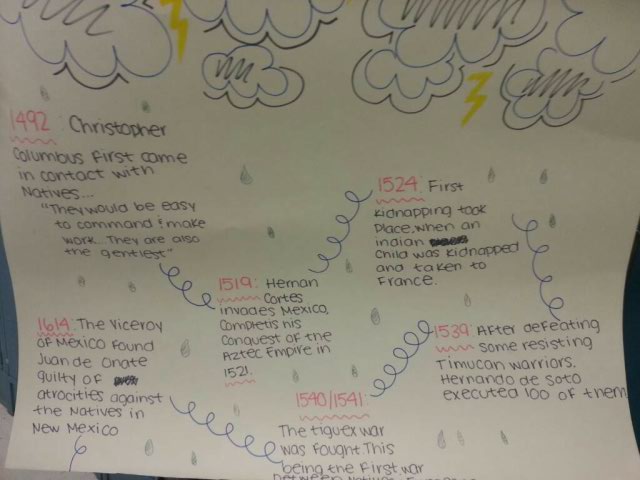 1492: Christopher
Columbus First came
in contact with
Natives...
"They would be easy
to command & make
work... They are also
the gentlest"
1519: Hernan
Cortes
invades Mexico,
Completis his
Conquest of the
Aztec Empire in
1521.
1524: First
kidnapping took
Place, when an
indian
Child was kidnapped
and taken to
France.
1539: After defeating
some resisting
Timucan warriors.
Hernando de Soto
executed 100 of them
1540/1541:
The tiguex war
was Fought This
being the First war
between
1614: The Viceroy
OF Mexico Found
Juan de Onate
guilty of
atrocities against
the Natives in
New Mexico